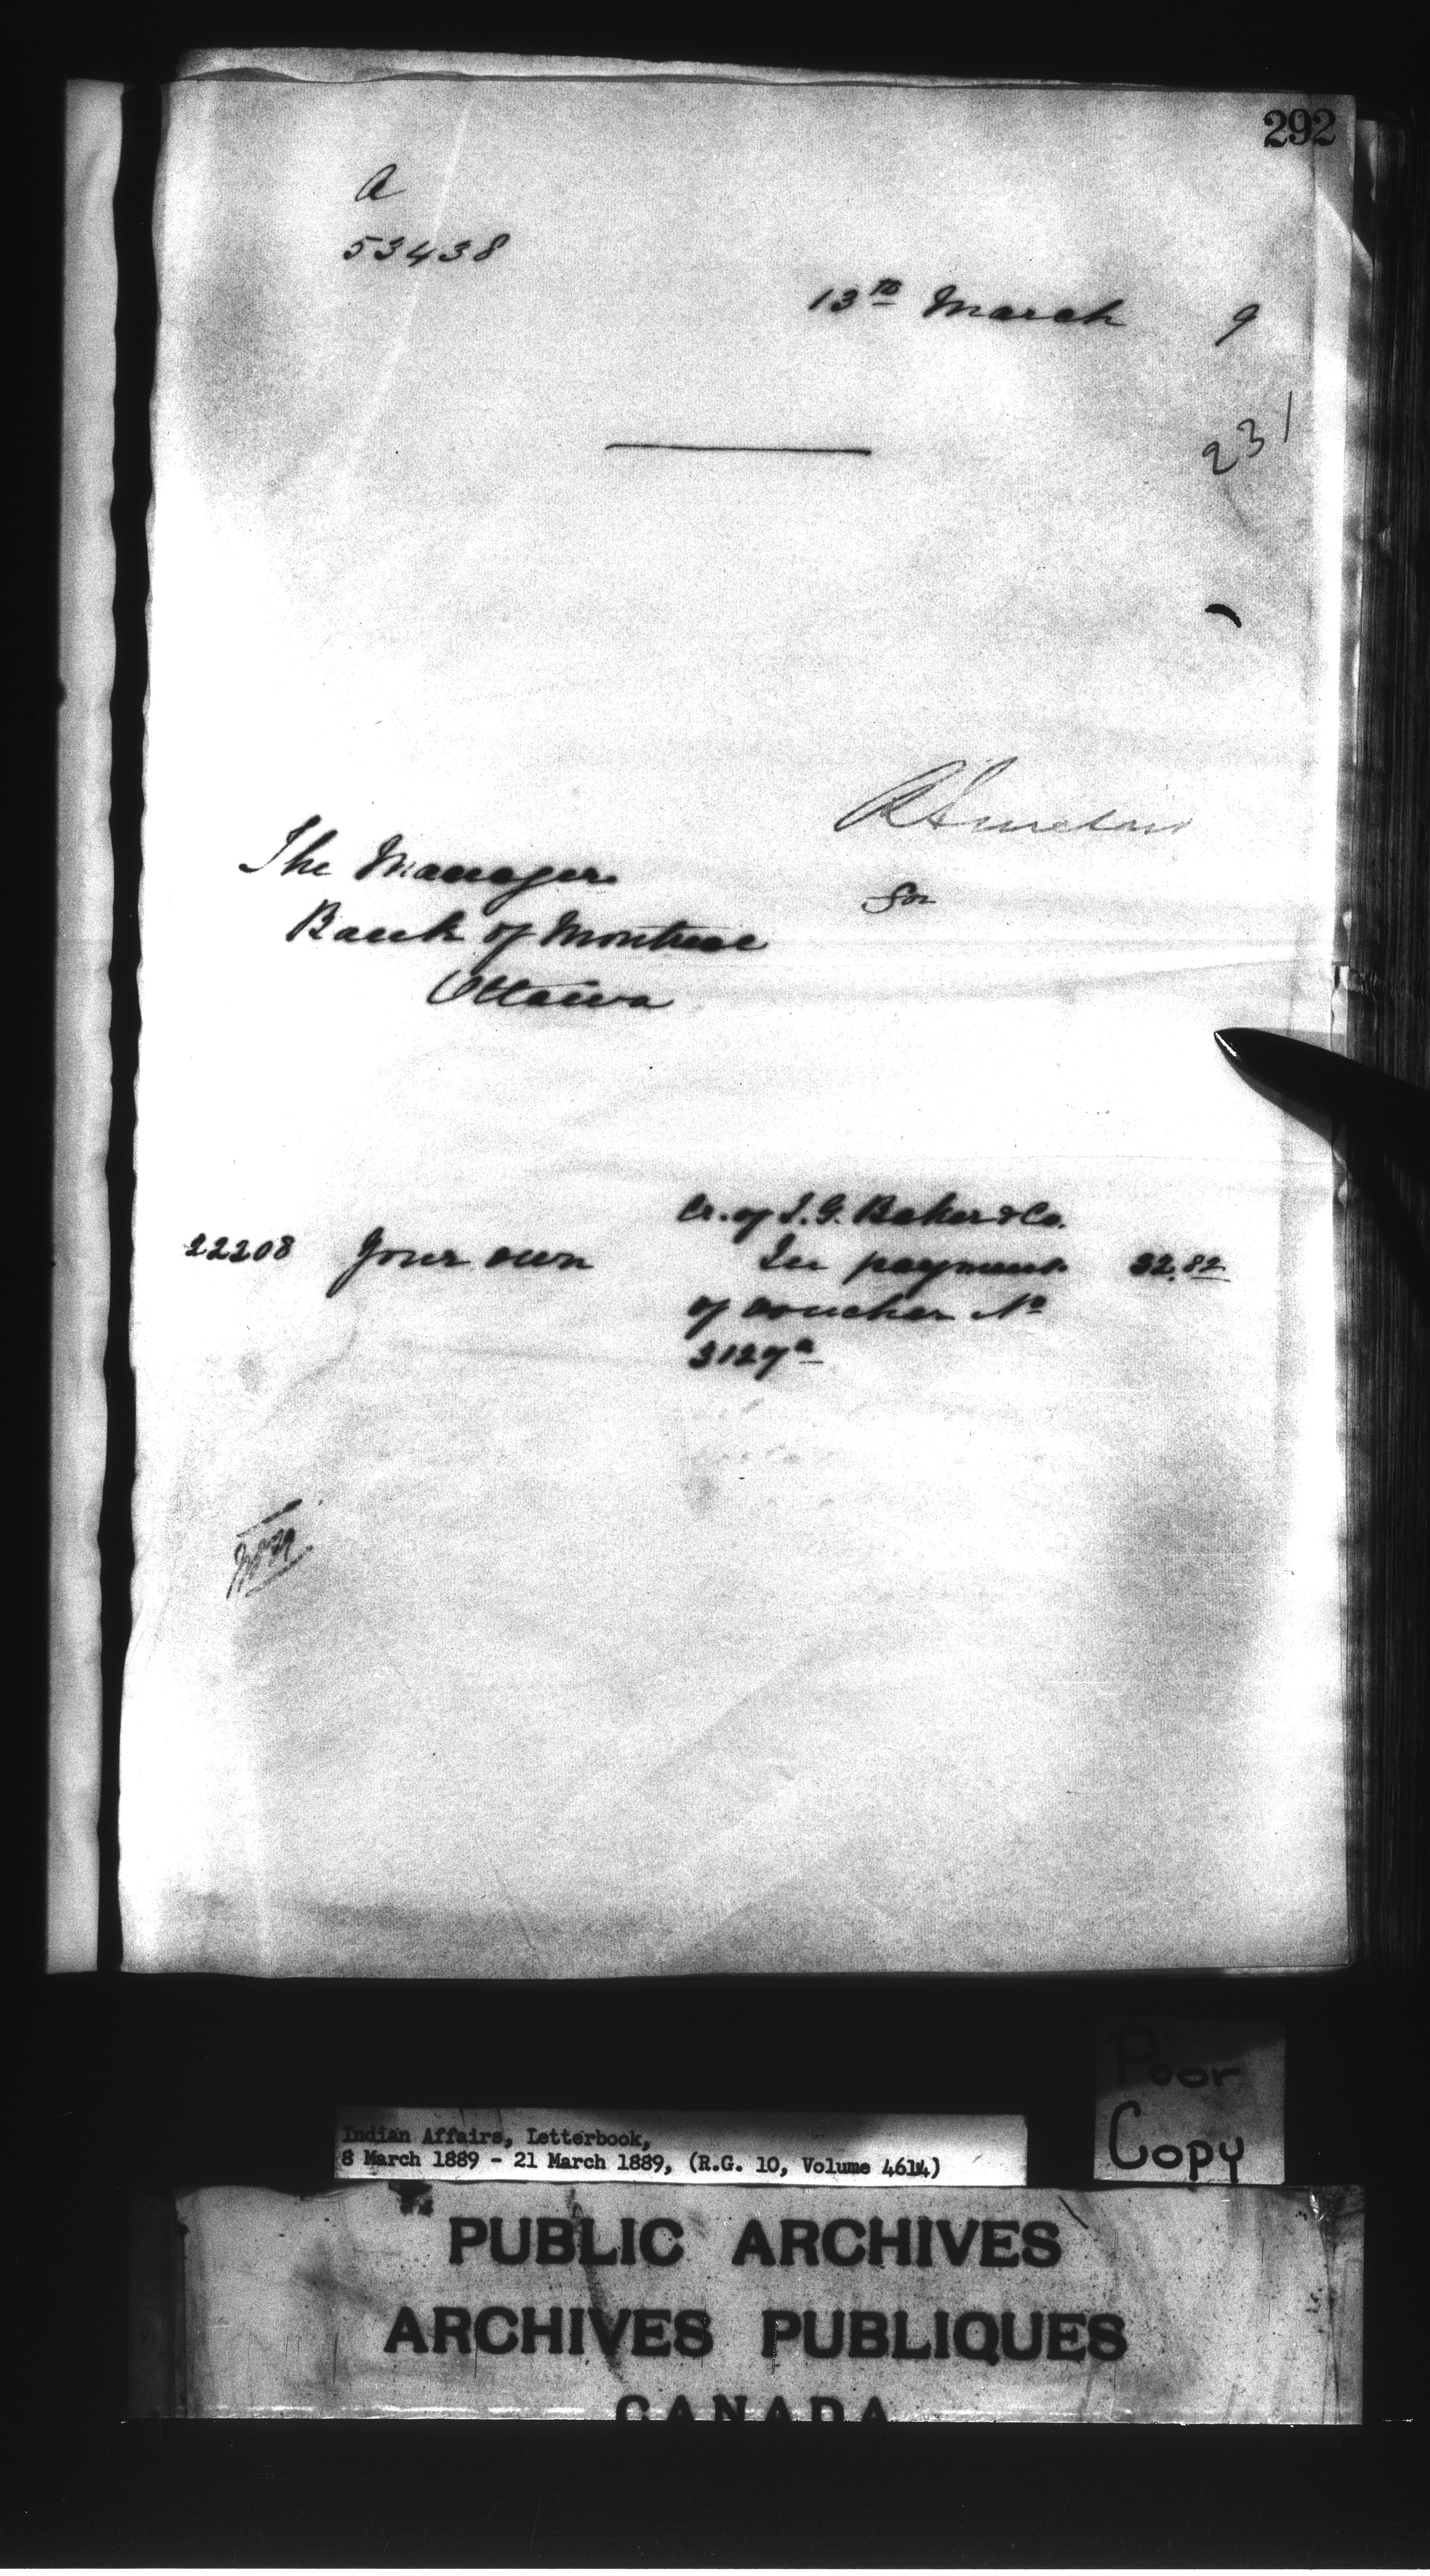 292
A
53438
13th March 9
231
The Manager
for
Bank of Montreal
Ottawa
Cr. of I. G. Baker & Co.
22208 Your own In payment 32.82
of voucher No
3127a
Poor
Copy
Indian Affairs, Letterbook,
8 March 1889 - 21 March 1889, (R.G. 10, Volume 4614)
PUBLIC ARCHIVES
ARCHIVES PUBLIQUES
CANADA